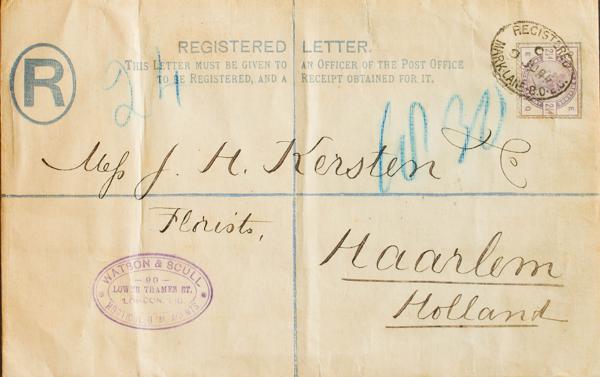 REGISTERED LETTER.
THIS LETTER MUST BE GIVEN TO AN OFFICER OF THE POST OFFICE
TO BE REGISTERED, AND A RECEIPT OBTAINED FOR IT.
R
24
REGISTERED
MARK LANE B.O. E.C.
Mess J. H. Kersten & C
Florists,
Haarlem
Holland
WATSON & SCULL
90
LOWER THAMES ST.
LONDON, E.C.
HORTICULTURAL AGENTS